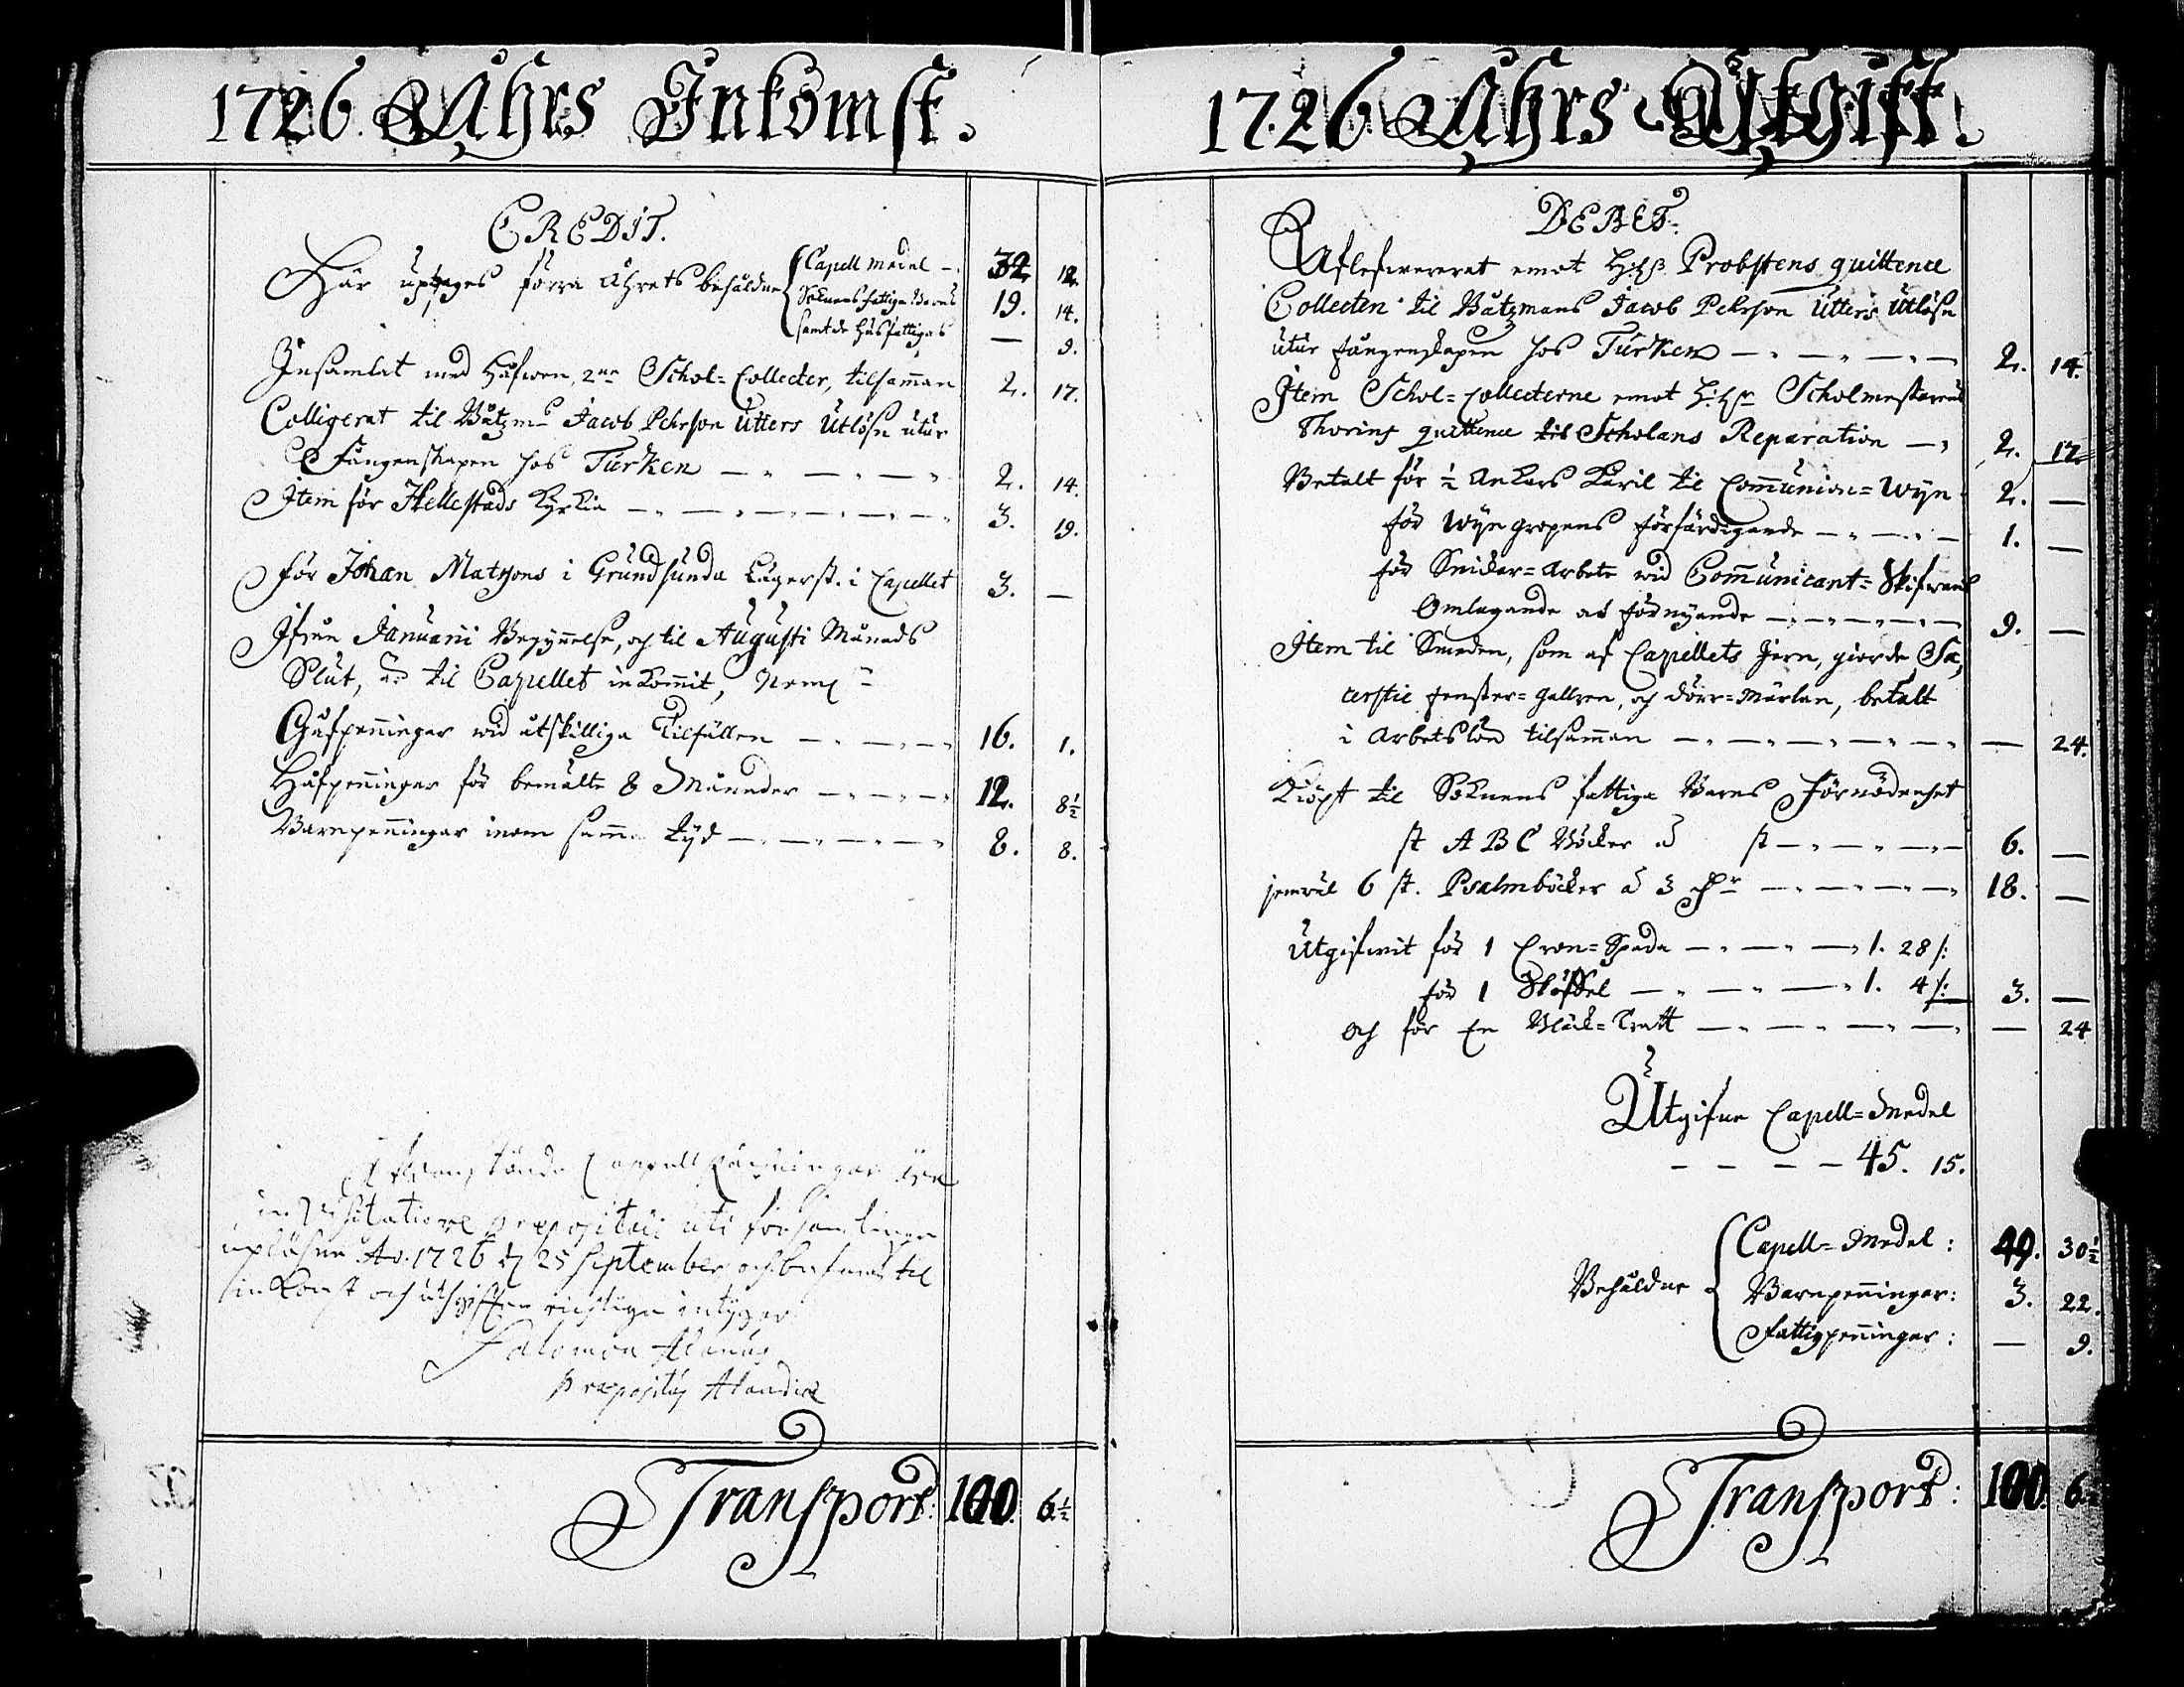 1726. Åhrs Inkomst.
CREDIT.
Här uptages förra Åhrets behåldne
Capell medel — 32. 12.
Soknens fattige Barns 19. 14.
samt de husfattigas — 9.
Insamlat med Håfwen, 2ne Schol-Collecter, tilsamman 2. 17.
Colligerat til Båtzm Jacob Pehrson Utters Utlösn utur
Fångenskapen hos Turken 2. 14.
Item för Hellestads Kyrkia 3. 19.
för Johan Matsons i Grundsunda Lägerst. i Capellet 3. —
Ifrån Januarii Begynnelse, och til Augusti Månads
Slut, är til Capellet inkommit, Neml
Gåfpenningar wid åtskillige Tilfällen 16. 1.
Håfpenningar för bemälte 8 Månader 12. 8½
Barnpenningar inom samma tijd 8. 8.
Capell Räkningar äro
in Visitatione præpositali uti församlingen
upläsne Ao. 1726 d 25 September och befunne til
inkomst och utgifften richtige intygar
Salomon Alanus
præpositus Alandiæ
Transport: 100. 6½
1726 Åhrs Utgift.
DEBET.
Aflefwererat emot Probstens quittence
Collecten til Båtzmans Jacob Pehrson Utters Utlösn
utur fångenskapen hos Turken 2. 14.
Item Schol-Collecterne emot Scholmestarens
Thorings quittence til Scholans Reparation 2. 17.
Betalt för ½ Ankars Käril til Communion-Wijn 2. —
för Wijn gropens förfärdigande 1. —
för Snickar-Arbete wid Communicant-Skifwans
Omlagande och förnyande 9. —
Item til Smeden, som af Capellets Jern, giorde Sa-
cerstie fenster-Gallren, och dörr-Märlan, betalt
i Arbetslön tilsamman — 24.
Kiöpt til Soknens fattige Barns Förnödenhet
st ABC Böcker á st 6. —
jemwäl 6 st. Psalmböcker á 3 18. —
Utgifwit för 1 Spada 1. 28/:
för 1 1. 4/: 3. —
och för en Bläck-Tratt — 24
Utgifne Capell-Medel
— — — — 45. 15.
Behåldne
Capell-Medel: 49. 30½
Barnpenningar: 3. 22.
Fattigpenningar: — 9.
Transport: 100. 6½